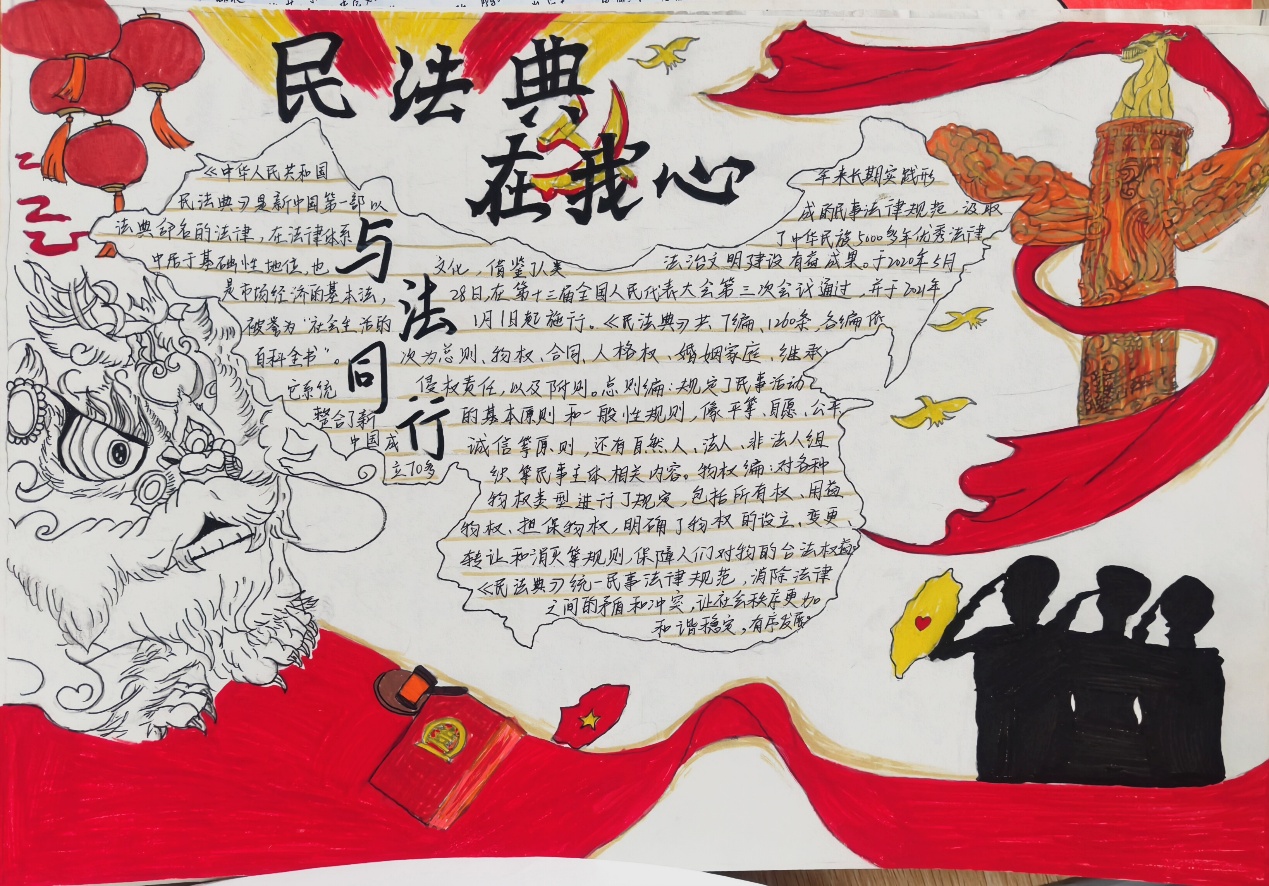 民法典
在我心
与法同行
《中华人民共和国
民法典》是新中国第一部以
法典命名的法律，在法律体系
中居于基础性地位，也
是市场经济的基本法，
被誉为“社会生活的
百科全书”。
它系统
整合了新
中国成
立70多
年来长期实践形
成的民事法律规范，汲取
了中华民族5000多年优秀法律
文化，借鉴人类 法治文明建设有益成果。于2020年5月
28日，在第十三届全国人民代表大会第三次会议通过，并于2021年
1月1日起施行。《民法典》共7编、1260条，各编依
次为总则、物权、合同、人格权、婚姻家庭、继承、
侵权责任，以及附则。总则编：规定了民事活动
的基本原则和一般性规则，像平等、自愿、公平、
诚信等原则，还有自然人、法人、非法人组
织等民事主体相关内容。物权编：对各种
物权类型进行了规定，包括所有权、用益
物权、担保物权，明确了物权的设立、变更、
转让和消灭等规则，保障人们对物的合法权益。
《民法典》统一民事法律规范，消除法律
之间的矛盾和冲突，让社会秩序更加
和谐稳定，有序发展。